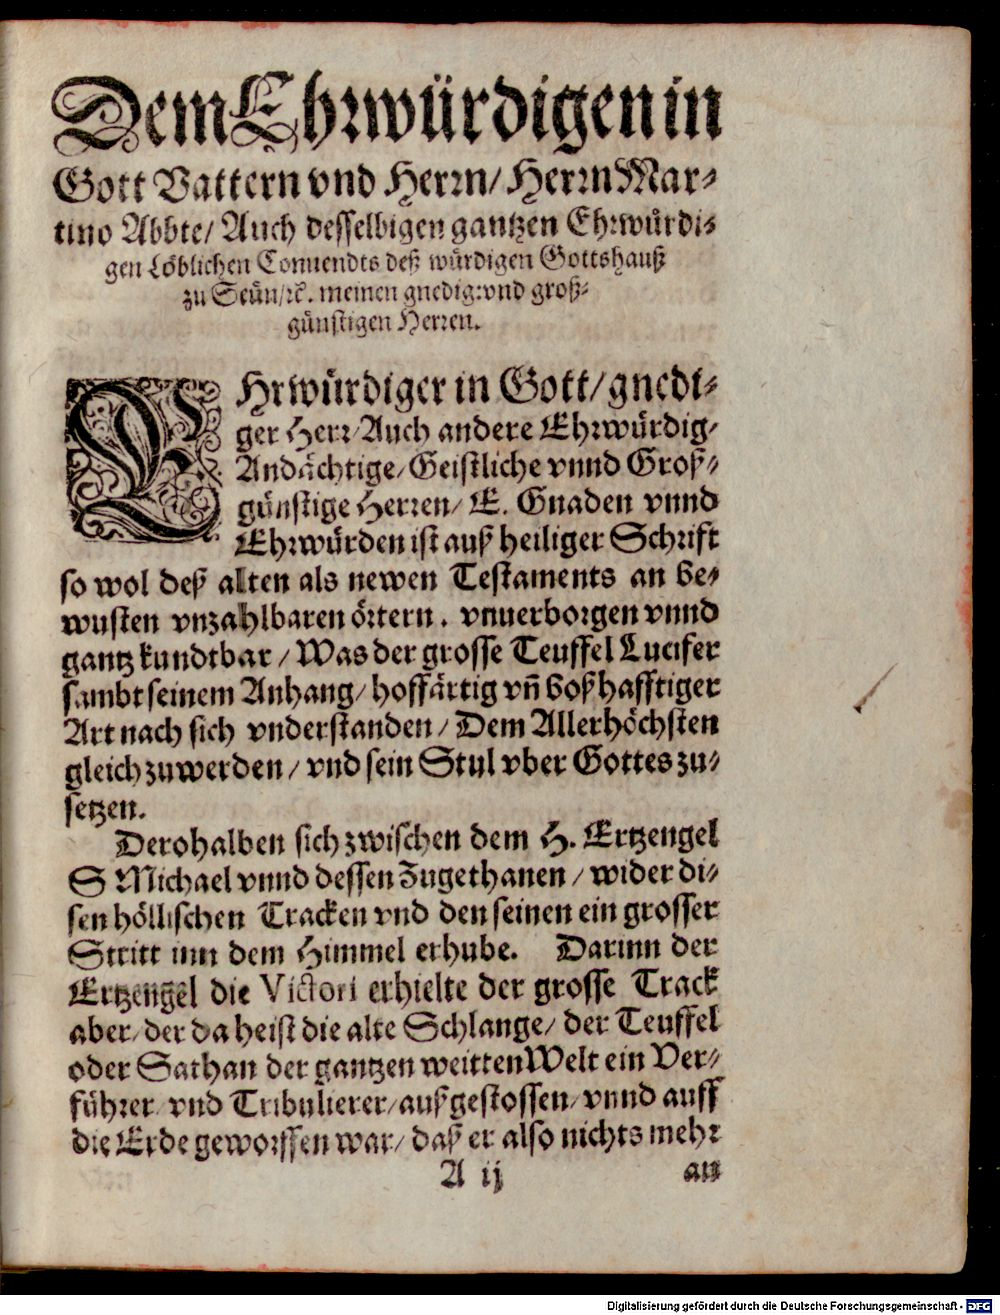 Dem Ehrwürdigen in
Gott Vattern vnd Herrn/ Herrn Mar⸗
tino Abbte/ Auch desselbigen gantzen Ehrwürdi⸗
gen Löblichen Conuendts deß würdigen Gottshauß
zu Seün/ꝛc. meinen gnedig: vnd groß⸗
günstigen Herren.
EHrwürdiger in Gott/ gnedi⸗
ger Herr/ Auch andere Ehrwürdig/
Andächtige/ Geistliche vnnd Groß⸗
günstige Herren/ E. Gnaden vnnd
Ehrwürden ist auß heiliger Schrift
so wol deß alten als newen Testaments an be⸗
wusten vnzahlbaren örtern. vnuerborgen vnnd
gantz kundtbar/ Was der grosse Teuffel Lucifer
sambt seinem Anhang/ hoffärtig vñ boßhafftiger
Art nach sich vnderstanden/ Dem Allerhöchsten
gleich zuwerden/ vnd sein Stul vber Gottes zu⸗
setzen.
Derohalben sich zwischen dem H. Ertzengel
S Michael vnnd dessen Zugethanen/ wider di⸗
sen höllischen Tracken vnd den seinen ein grosser
Stritt inn dem Himmel erhube. Darinn der
Ertzengel die Victori erhielte der grosse Track
aber/ der da heist die alte Schlange/ der Teuffel
oder Sathan der gantzen weitten Welt ein Ver⸗
führer vnd Tribulierer/ außgestossen/ vnnd auff
die Erde geworffen war/ daß er also nichts mehr
A ij an
Digitalisierung gefördert durch die Deutsche Forschungsgemeinschaft - DFG